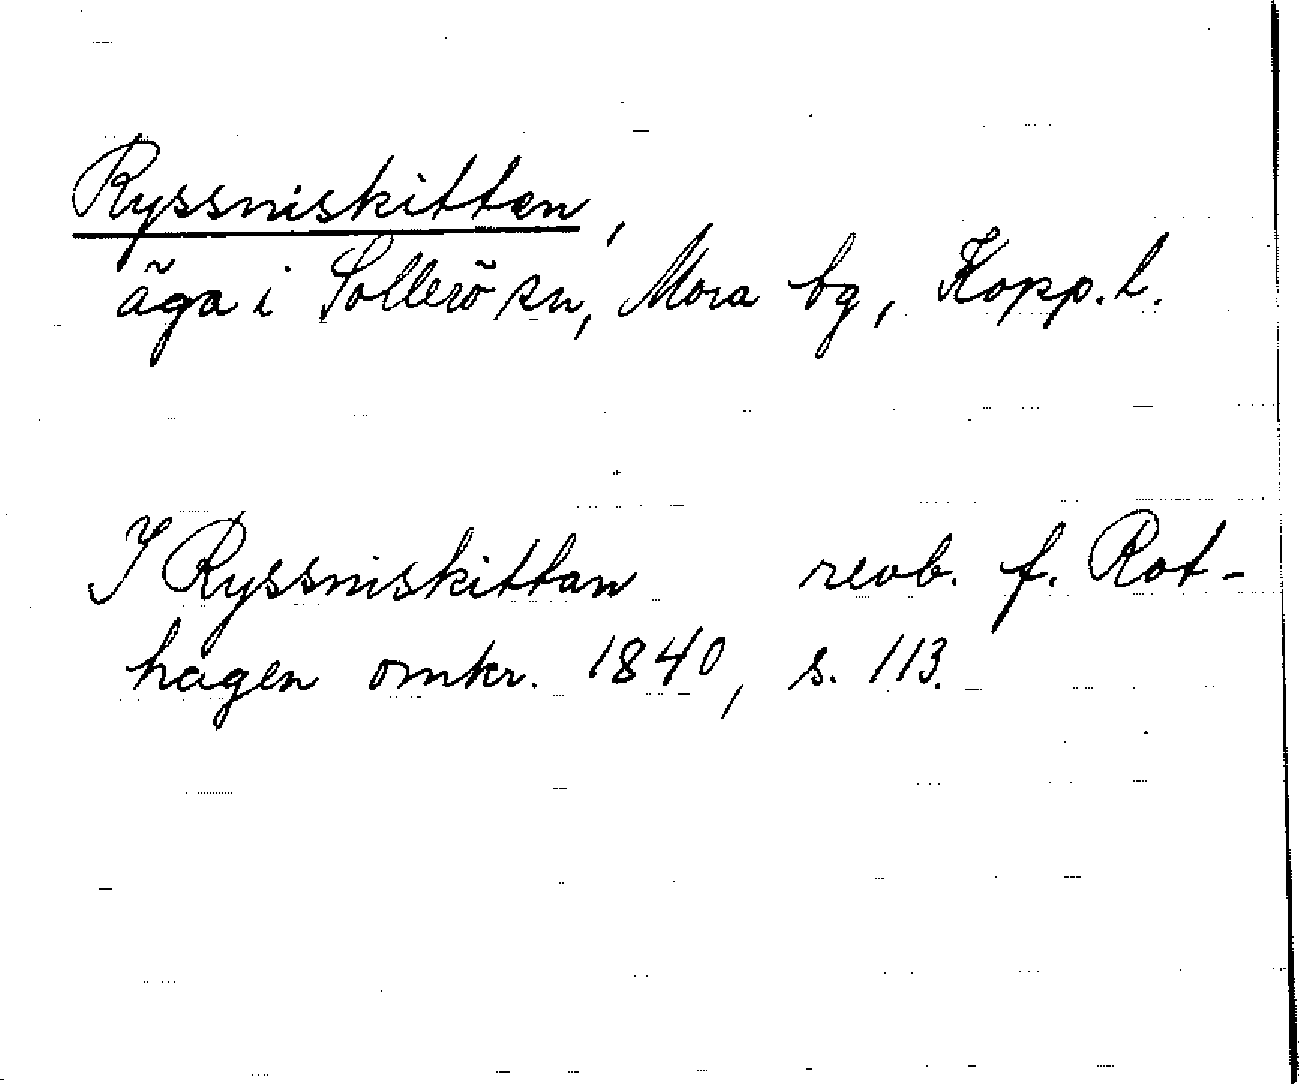 Ryssniskittan,
äga i Sollerö sn, Mora bg, Kopp. l.
I Ryssniskittan revb. f. Rot-
hagen omkr. 1840, s. 113.